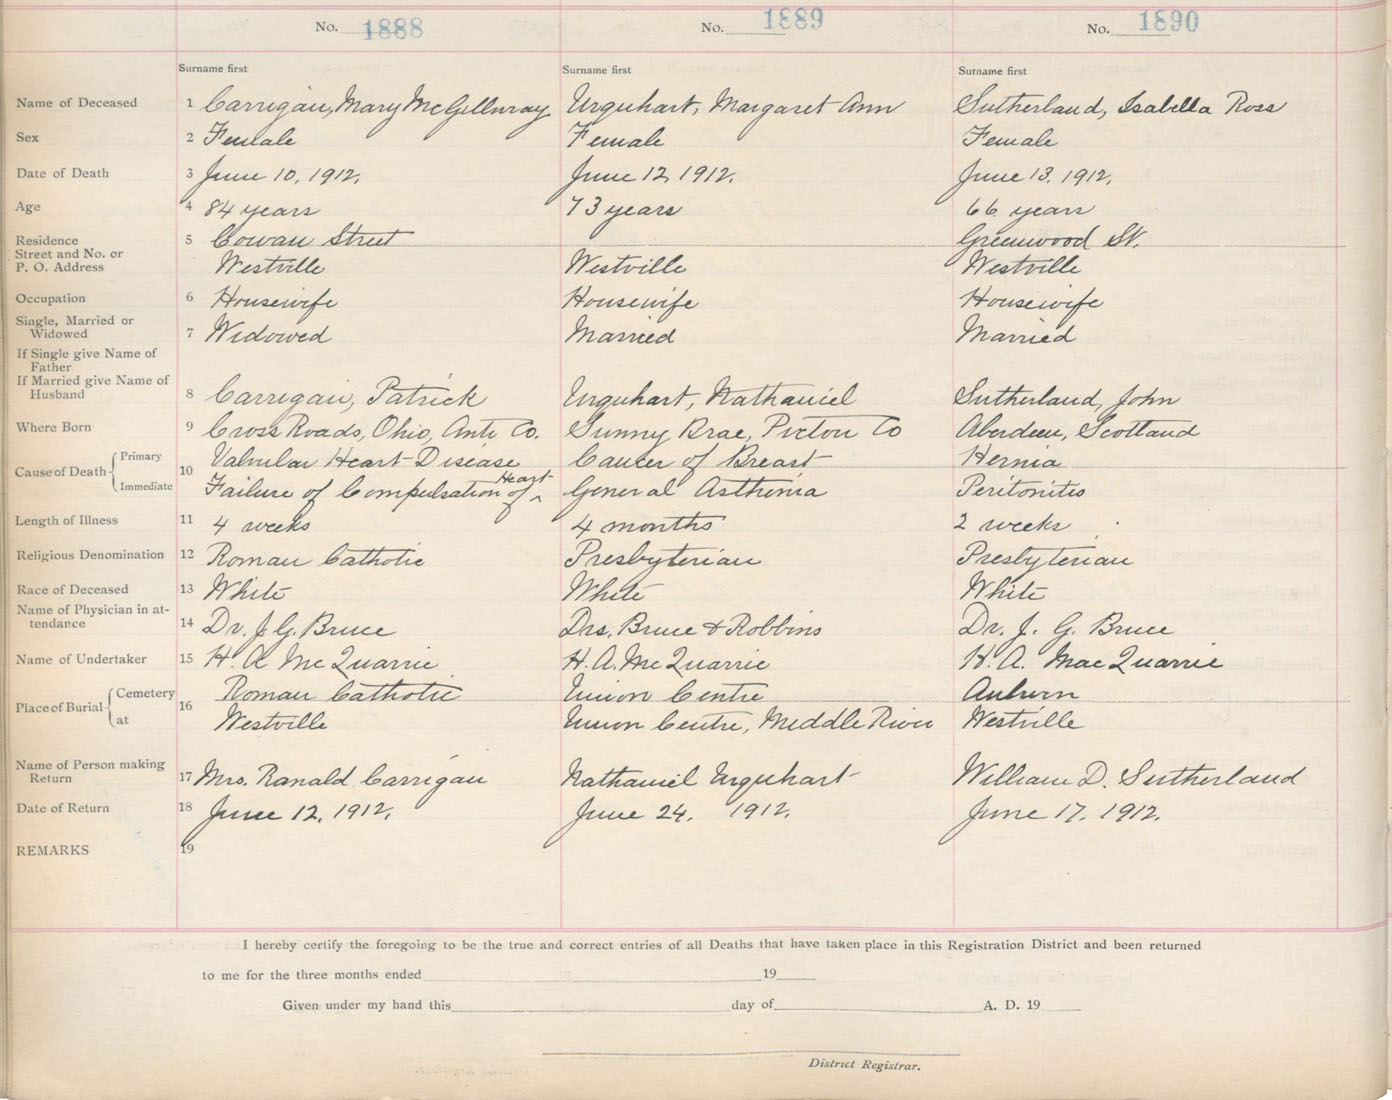 No. 1888 No. 1889 No. 1890
Surname first Surname first Surname first
Name of Deceased 1 Carrigan, Mary McGillivray Urquhart, Margaret Ann Sutherland, Isabella Ross
Sex 2 Female Female Female
Date of Death 3 June 10, 1912. June 12 1912. June 13. 1912.
Age 4 84 years 73 years 66 years
Residence 5 Cowan Street Greenwood St.
Street and No. or
P. O. Address Westville Westville Westville
Occupation 6 Housewife Housewife Housewife
Single, Married or
Widowed 7 Widowed Married Married
If Single give Name of
Father
If Married give Name of
Husband 8 Carrigan, Patrick Urquhart, Nathaniel Sutherland, John
Where Born 9 Cross Roads, Ohio, Ante Co. Sunny Brae, Pictou Co Aberdeen, Scotland
Cause of Death Primary 10 Valvular Heart Disease Cancer of Breast Hernia
Immediate Failure of Compulsation of Heart General Asthinia Peritonitis
Length of Illness 11 4 weeks 4 months 2 weeks
Religious Denomination 12 Roman Catholic Presbyterian Presbyterian
Race of Deceased 13 White White White
Name of Physician in at-
tendance 14 Dr. J. G. Bruce Drs. Bruce & Robbins Dr. J. G. Bruce
Name of Undertaker 15 H. A McQuarrie H. A. McQuarrie H. A. MacQuarrie
Place of Burial Cemetery 16 Roman Catholic Union Centre Auburn
at Westville Union Centre, Middle River Westville
Name of Person making
Return 17 Mrs. Ranald Carrigan Nathaniel Urquhart William D. Sutherland
Date of Return 18 June 12, 1912. June 24, 1912. June 17. 1912.
REMARKS 19
I hereby certify the foregoing to be the true and correct entries of all Deaths that have taken place in this Registration District and been returned
to me for the three months ended 19
Given under my hand this day of A. D. 19
District Registrar.